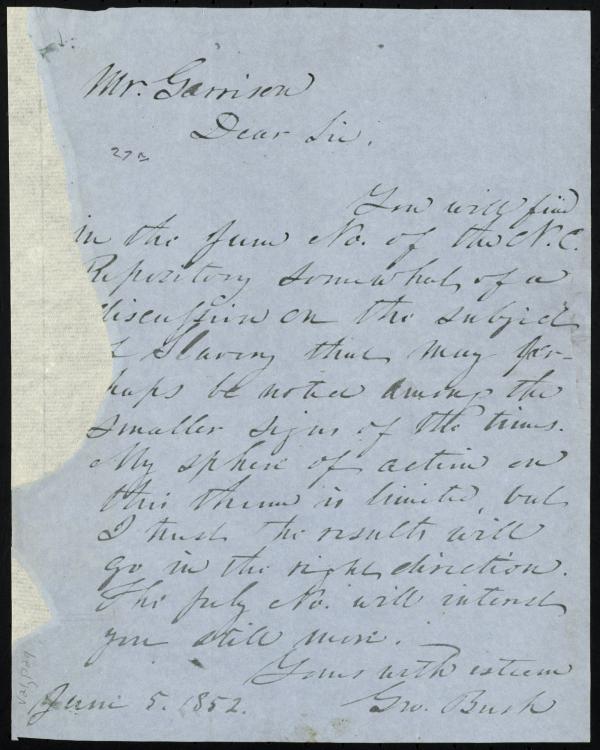 Mr. Garrison
Dear Sir.
You will find
in the June No. of the N.C.
Repository somewhat of a
discussion on the subject
Slavery that may per-
haps be noted among the
smaller signs of the times.
My sphere of action on
this theme is limited, but
I trust the results will
go in the right direction.
The July No. will interest
you still more.
Yours with esteem
June 5. 1852.
Geo. Bush